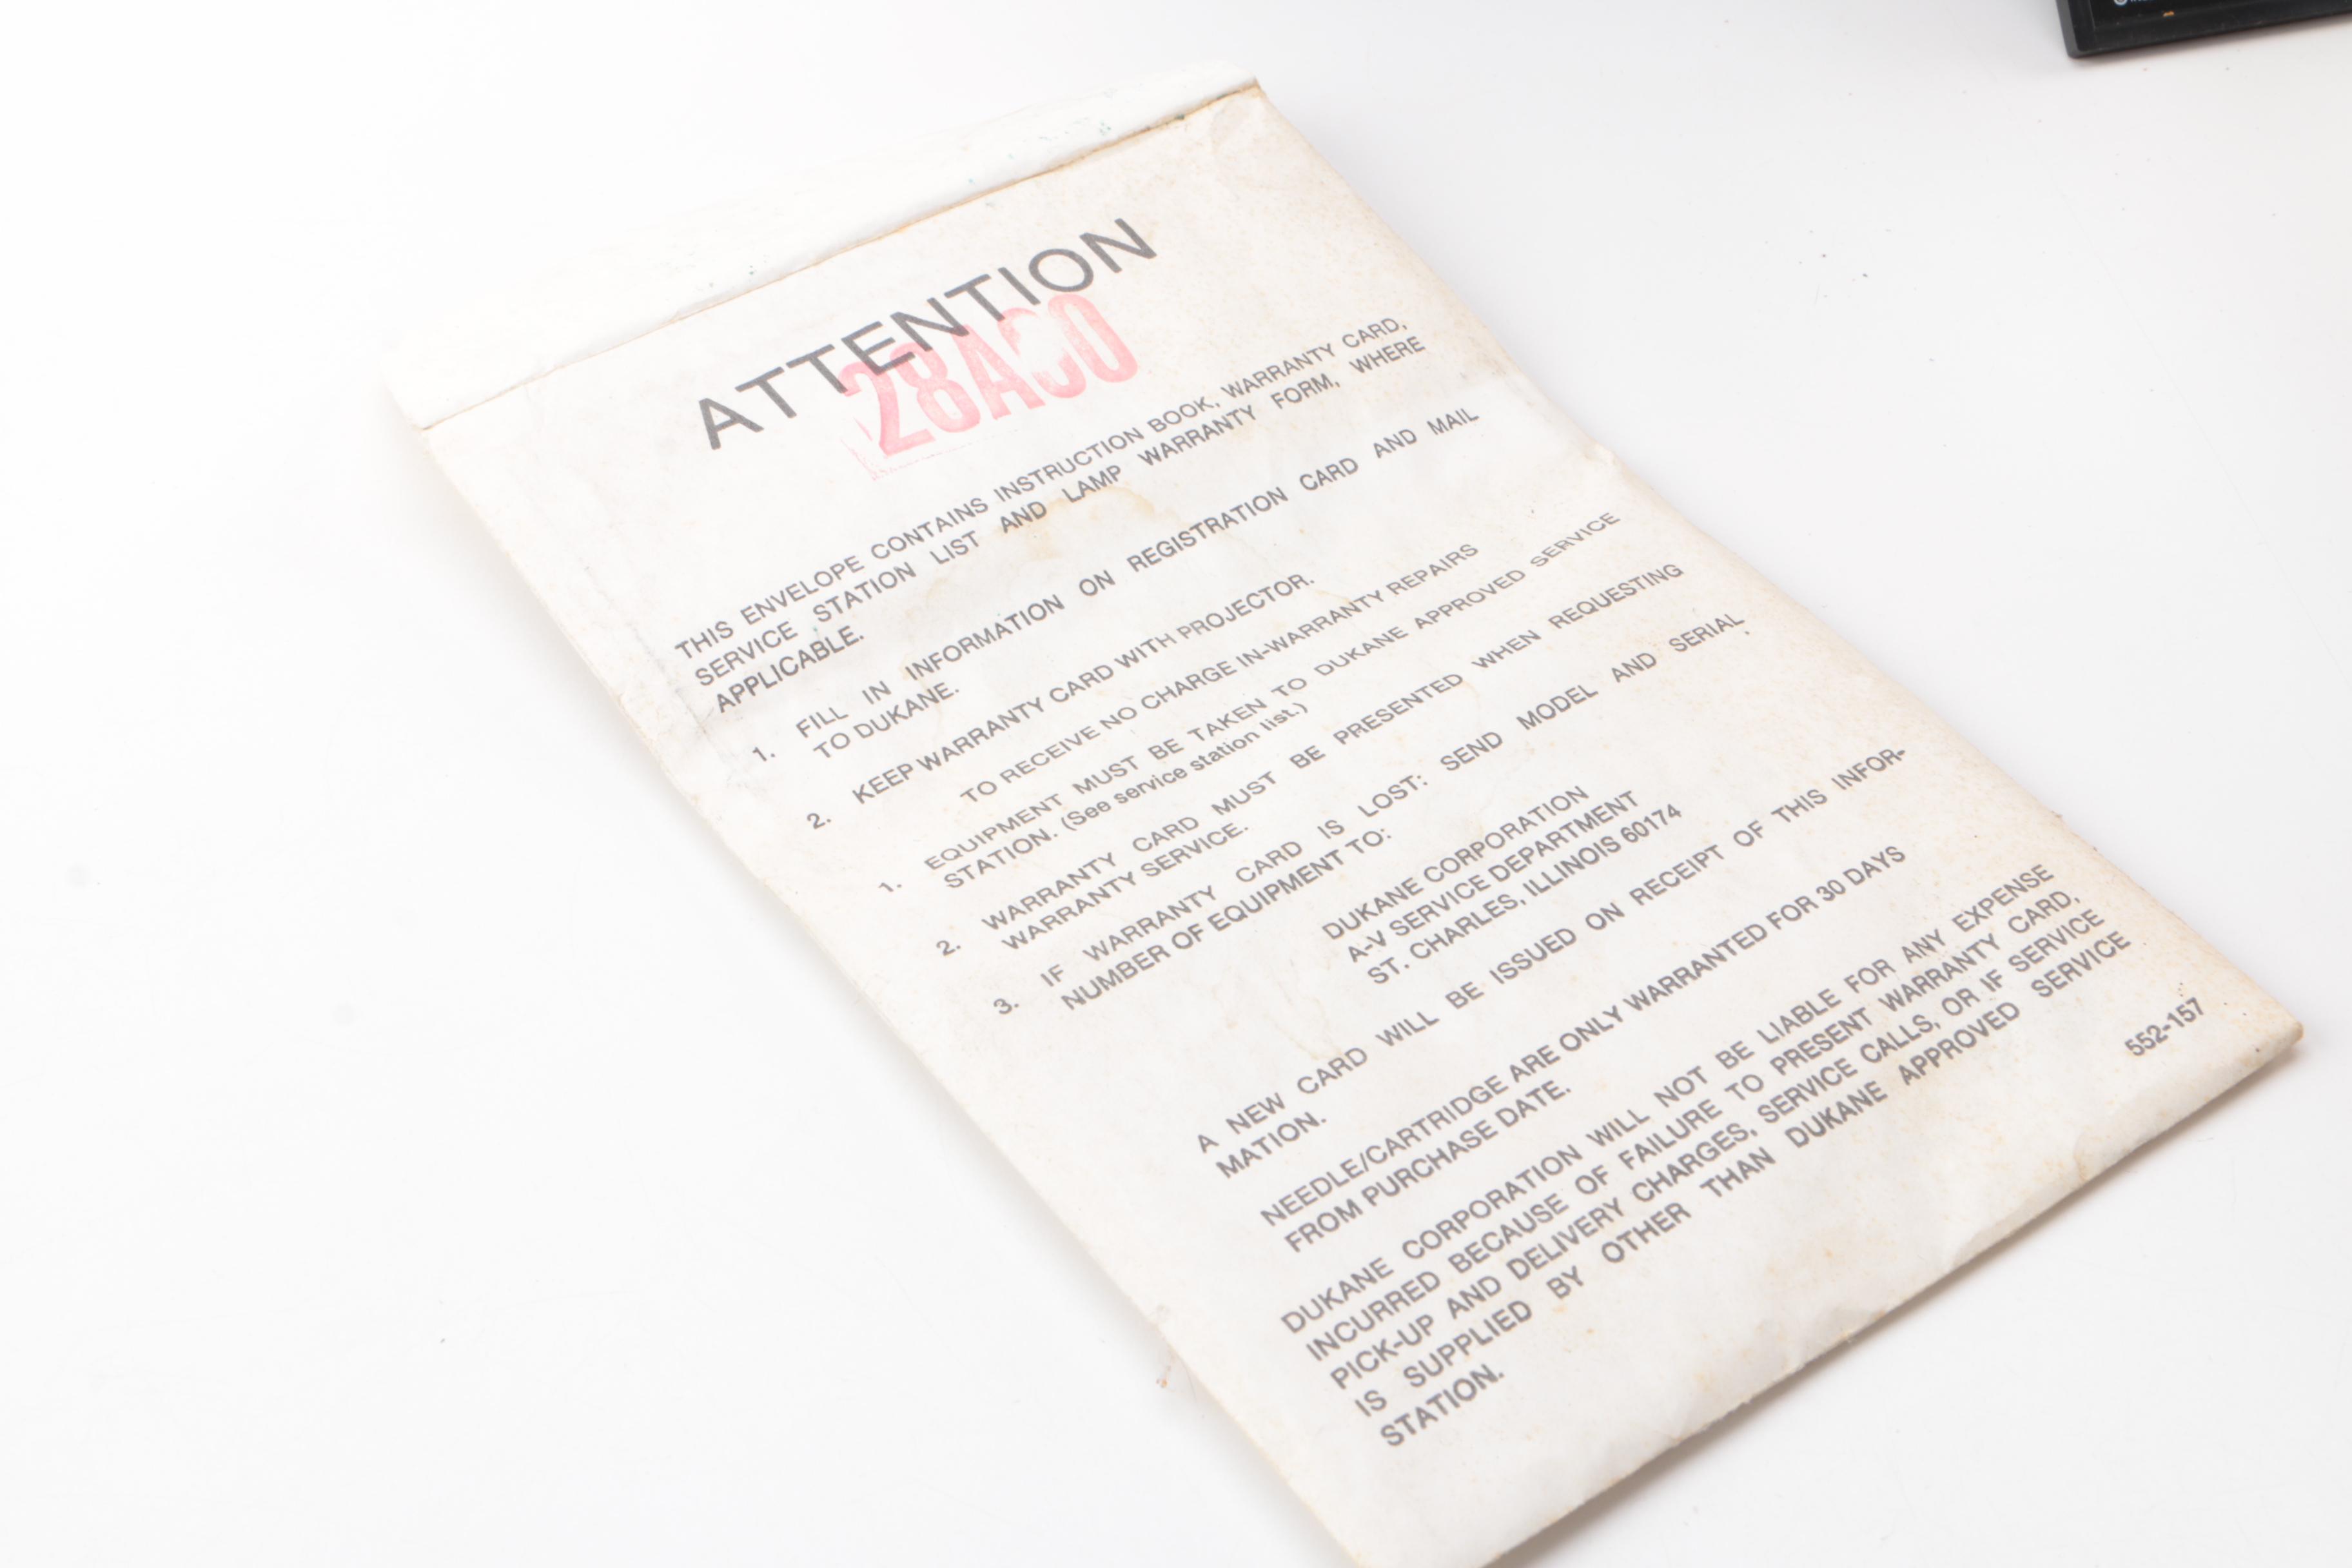 ATTENTION
THIS ENVELOPE CONTAINS INSTRUCTION BOOK, WARRANTY CARD,
SERVICE STATION LIST AND LAMP WARRANTY FORM, WHERE
APPLICABLE.
1. FILL IN INFORMATION ON REGISTRATION CARD AND MAIL
TO DUKANE.
2. KEEP WARRANTY CARD WITH PROJECTOR.
TO RECEIVE NO CHARGE IN-WARRANTY REPAIRS
1. EQUIPMENT MUST BE TAKEN TO DUKANE APPROVED SERVICE
STATION. (See service station list.)
2. WARRANTY CARD MUST BE PRESENTED WHEN REQUESTING
WARRANTY SERVICE.
3. IF WARRANTY CARD IS LOST: SEND MODEL AND SERIAL
NUMBER OF EQUIPMENT TO:
DUKANE CORPORATION
A-V SERVICE DEPARTMENT
ST. CHARLES, ILLINOIS 60174
A NEW CARD WILL BE ISSUED ON RECEIPT OF THIS INFOR-
MATION.
NEEDLE/CARTRIDGE ARE ONLY WARRANTED FOR 30 DAYS
FROM PURCHASE DATE.
DUKANE CORPORATION WILL NOT BE LIABLE FOR ANY EXPENSE
INCURRED BECAUSE OF FAILURE TO PRESENT WARRANTY CARD,
PICK-UP AND DELIVERY CHARGES, SERVICE CALLS, OR IF SERVICE
IS SUPPLIED BY OTHER THAN DUKANE APPROVED SERVICE
STATION.
552-157